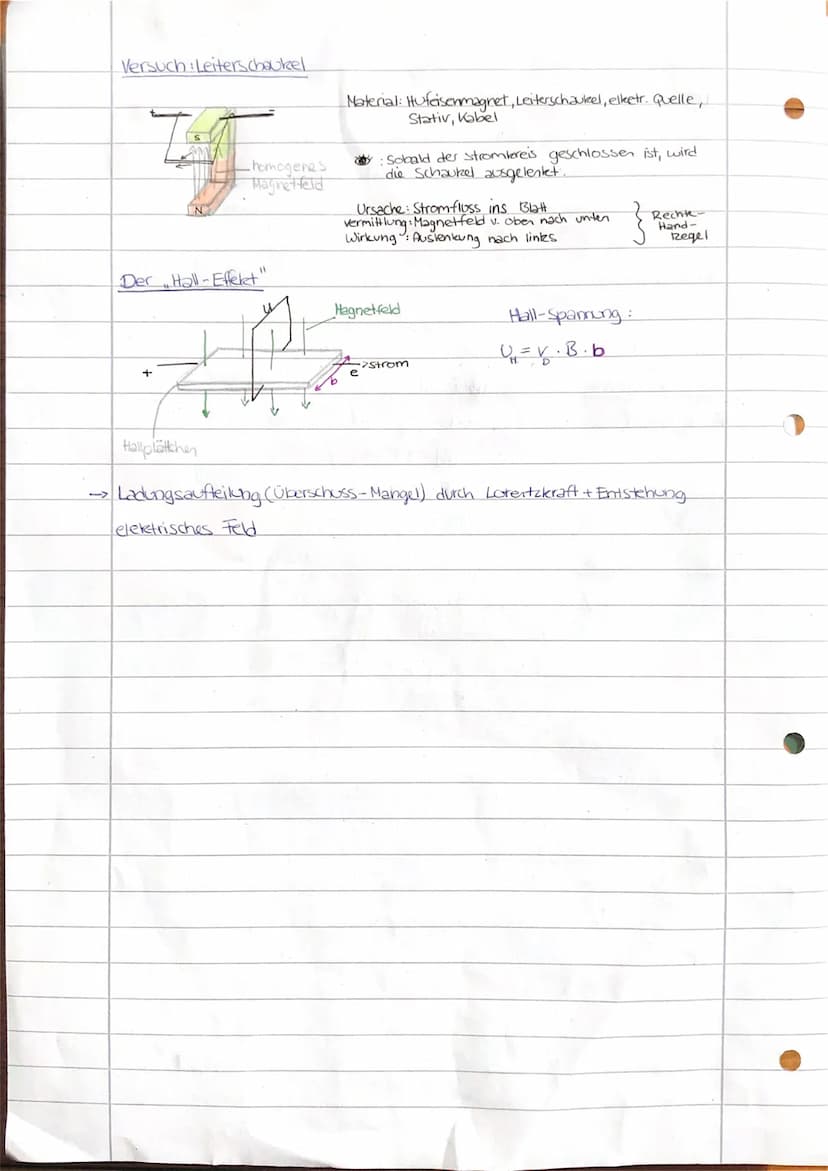 Versuch: Leiterschaukel
Material: Hufeisenmagnet, Leiterschaukel, elketr. Quelle,
Stativ, Kabel
+
-
S
N
homogenes
Magnetfeld
: Sobald der Stromkreis geschlossen ist, wird
die Schaukel ausgelenkt.
Ursache: Stromfluss ins Blatt
Vermittlung: Magnetfeld v. oben nach unten
Wirkung: Auslenkung nach links
Rechte-
Hand-
Regel
Der „Hall-Effekt"
U
Magnetfeld
Hall-Spannung:
U_H = v_D · B · b
+
e
Strom
b
Hallplättchen
→ Ladungsaufteilung (Überschuss-Mangel) durch Lorentzkraft + Entstehung
elektrisches Feld